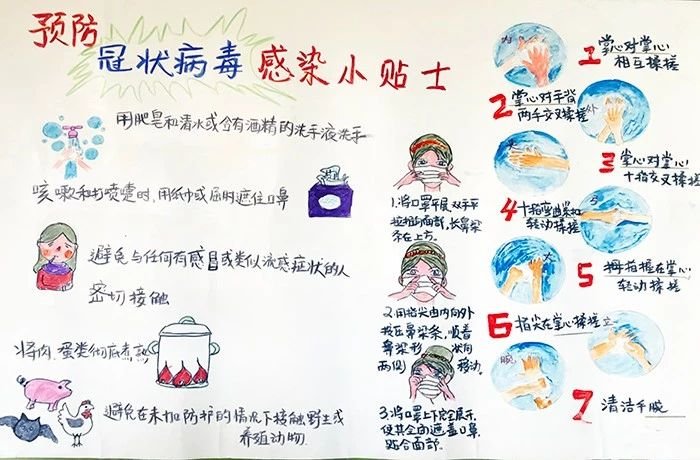 预防
冠状病毒
感染小贴士
用肥皂和清水或含有酒精的洗手液洗手
咳嗽和打喷嚏时,用纸巾或屈肘遮住口鼻
避免与任何有感冒或类似流感症状的人
密切接触
将肉、蛋类彻底煮熟
避免在未加防护的情况下接触野生或
养殖动物
1.将口罩平展,双手平
拉推向面部,长鼻梁
条在上方。
2.用指尖由内向外
按压鼻梁条,顺着
鼻梁形状向
两侧移动。
3.将口罩上下完全展开,
使其全面遮盖口鼻,
贴合面部。
1 掌心对掌心
相互揉搓
内
2 掌心对手背
两手交叉揉搓
外
3 掌心对掌心
十指交叉揉搓
夹
4 十指弯曲紧扣
转动揉搓
弓
5 拇指握在掌心
转动揉搓
大
6 指尖在掌心揉搓
立
7 清洁手腕
腕